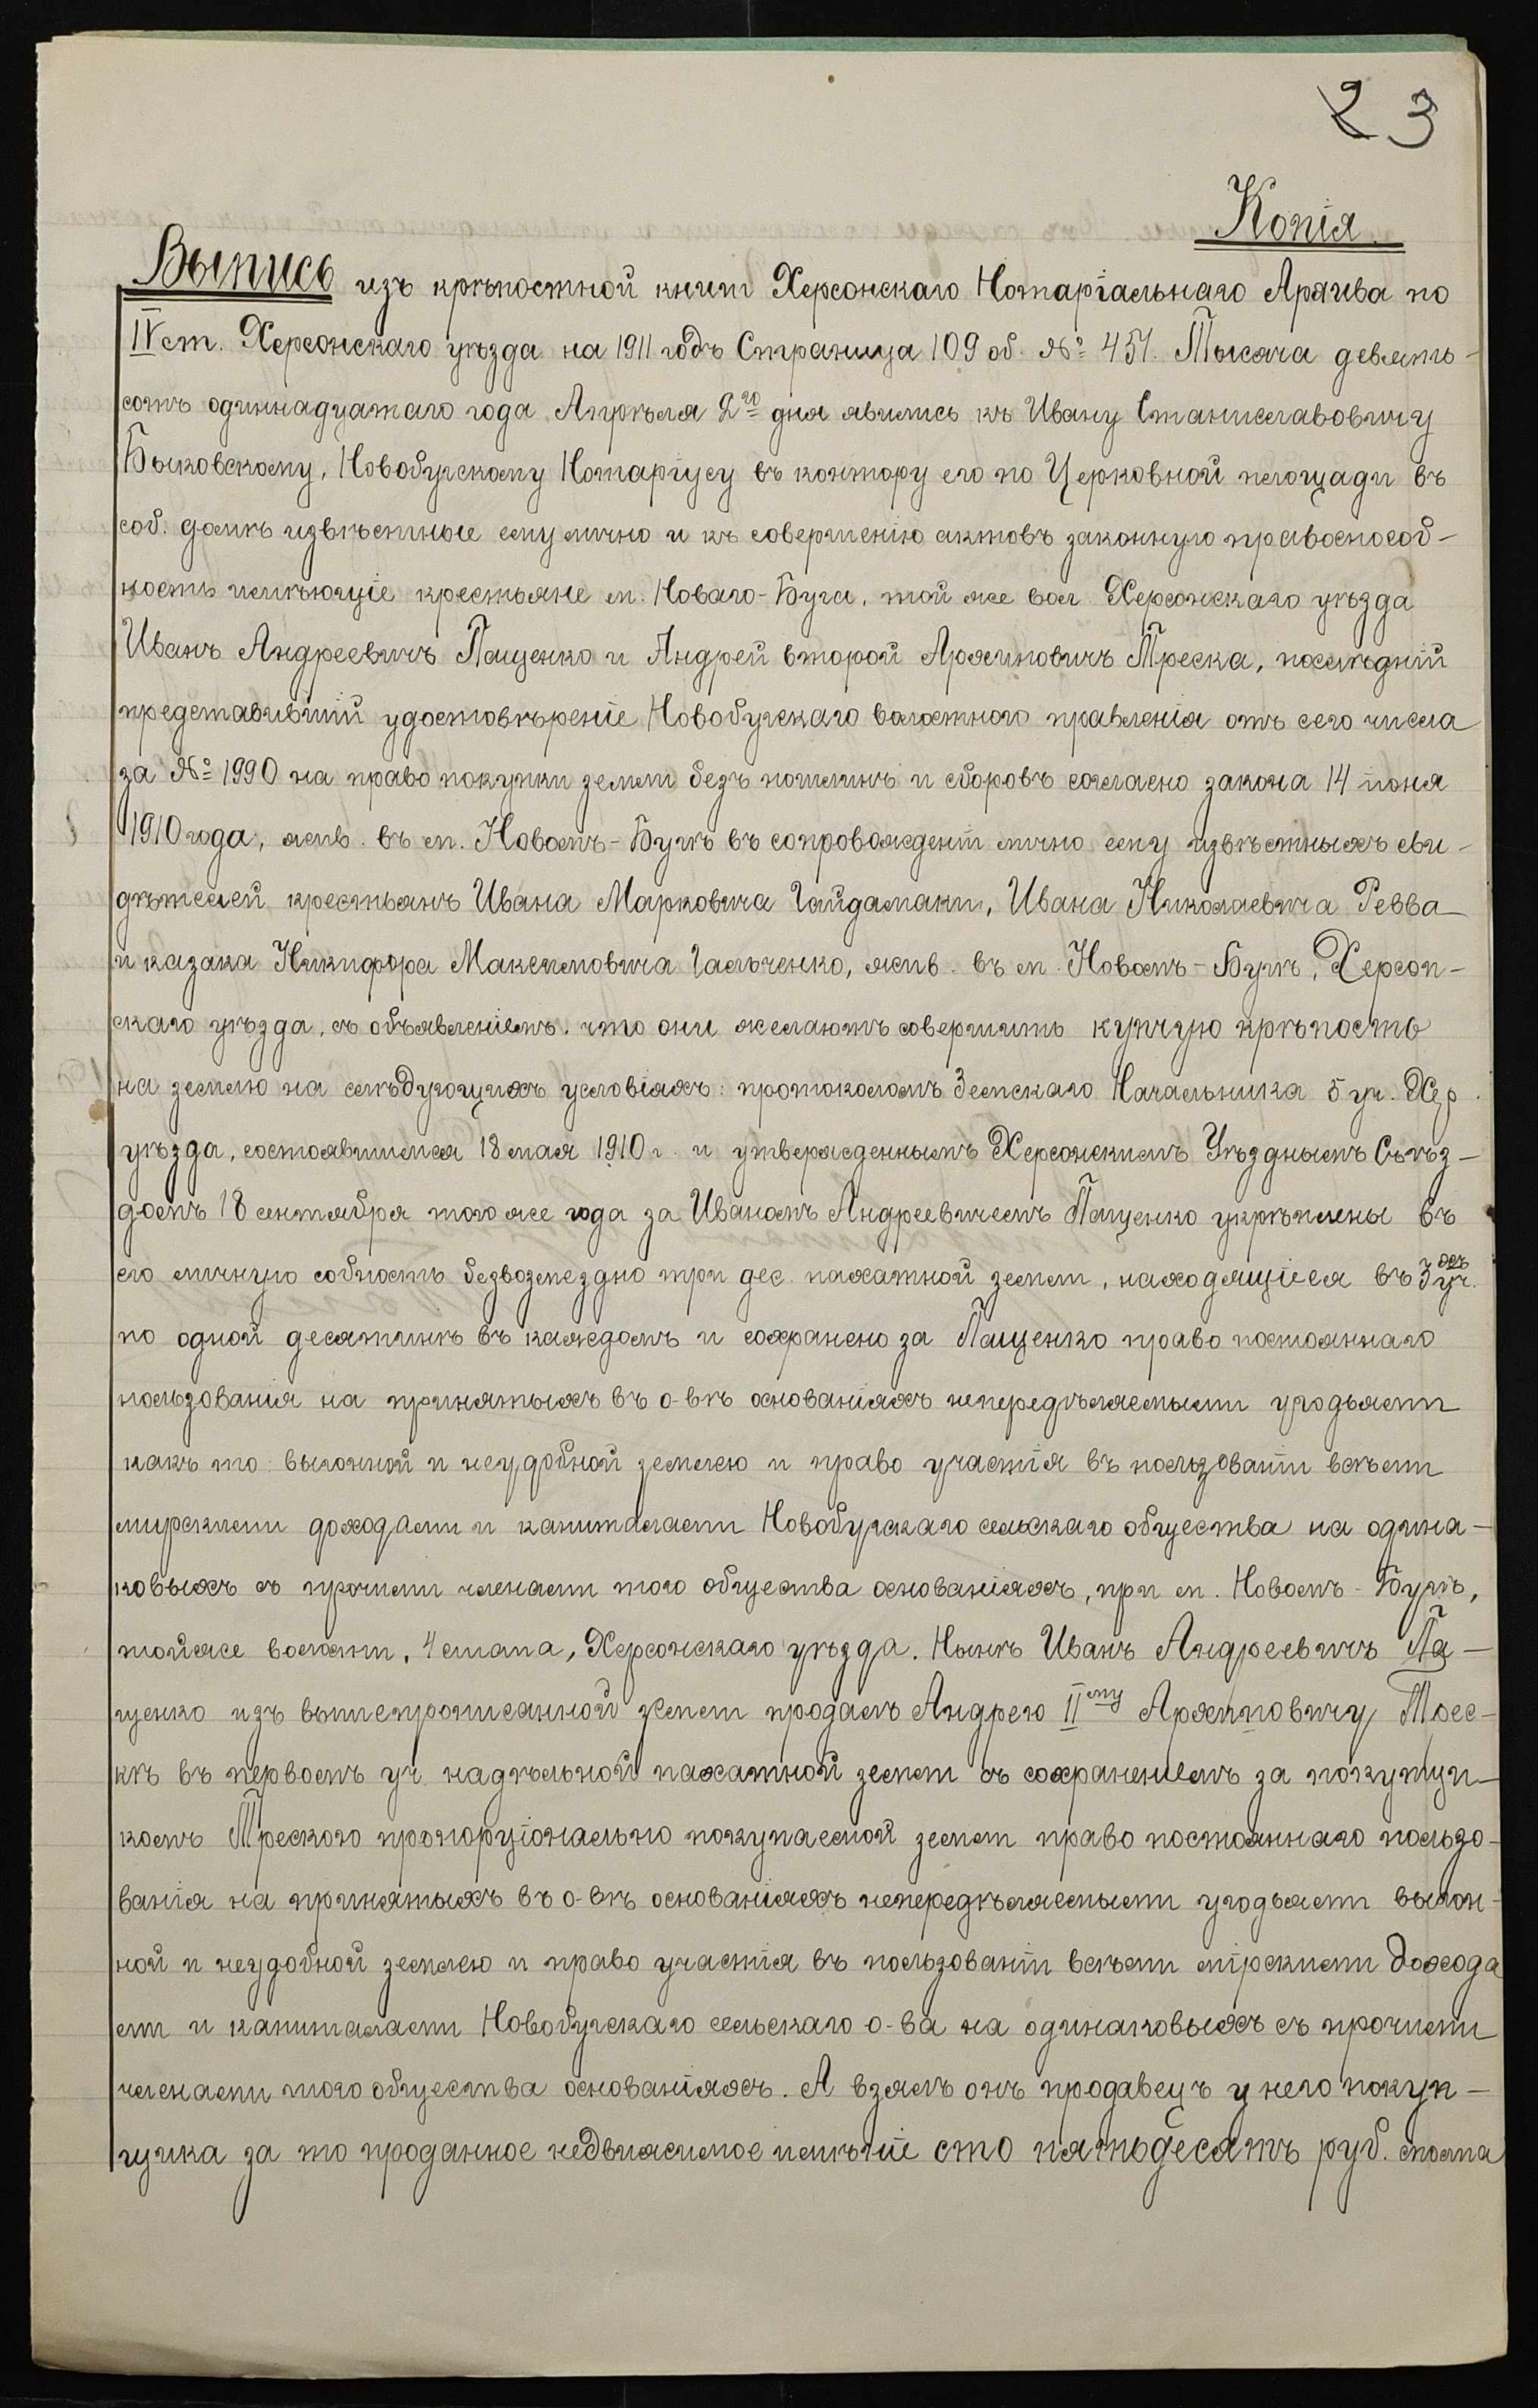 23
Копія.
Выпись изъ крѣпостной книги Херсонскаго Нотаріальнаго Архива по
IV ст. Херсонскаго уѣзда на 1911 годъ Страница 109 об. № 451. Тысяча девять-
сотъ одиннадцатаго года Апрѣля 2го дня явились къ Ивану Станиславовичу
Быковскому, Новобугскому Нотаріусу въ контору его по Церковной площади въ
соб. домѣ извѣстные ему лично и къ совершенію актовъ законную правоспособ-
ность имѣющіе крестьяне м. Новаго-Буга, той же вол. Херсонскаго уѣзда
Иванъ Андреевичъ Пащенко и Андрей второй Архиповичъ Треска, послѣдній
представившій удостовѣреніе Новобугскаго волостного правленія отъ сего числа
за № 1990 на право покупки земли безъ пошлинъ и сборовъ согласно закона 14 іюня
1910 года, жив. въ м. Новомъ-Бугѣ въ сопровожденіи лично ему извѣстныхъ сви-
дѣтелей крестьянъ Ивана Марковича Гайдамаки, Ивана Николаевича Ревва
и казака Никифора Максимовича Гальченко, жив. въ м. Новомъ-Бугѣ, Херсон-
скаго уѣзда, съ объявленіемъ, что они желаютъ совершить купчую крѣпость
на землю на слѣдующихъ условіяхъ: протоколомъ Земскаго Начальника 5 уч. Хер.
уѣзда, состоявшимся 18 мая 1910 г. и утвержденнымъ Херсонскимъ Уѣзднымъ Съѣз-
домъ 18 сентября того же года за Иваномъ Андреевичемъ Пащенко укрѣплены въ
его личную собность безвозмездно три дес. пахатной земли, находящіеся въ 3 уч.
по одной десятинѣ въ каждомъ и сохранено за Пащенко право постояннаго
пользованія на принятыхъ въ о-вѣ основаніяхъ непередѣляемыми угодьями
какъ то: выгонной и неудобной землею и право участія въ пользованіи всѣми
мирскими доходами и капиталами Новобугскаго сельскаго общества на одина-
ковыхъ съ прочими членами того общества основаніяхъ, при м. Новомъ-Бугѣ,
тойже волости, 4 стана, Херсонскаго уѣзда. Нынѣ Иванъ Андреевичъ Па-
щенко изъ вышепрописанной земли продалъ Андрею IIму Архиповичу Трес-
кѣ въ первомъ уч. надѣльной пахатной земли съ сохраненіемъ за покупщи-
комъ Трескою пропорціонально покупаемой земли право постояннаго пользо-
ванія на принятыхъ въ о-вѣ основаніяхъ непередѣляемыми угодьями выгон-
ной и неудобной землею и право участія въ пользованіи всѣми мірскими дохода
ми и капиталами Новобугскаго сельскаго о-ва на одинаковыхъ съ прочими
членами того общества основаніяхъ. А взялъ онъ продавецъ у него покуп-
щика за то проданное недвижимое имѣніе сто пятьдесятъ руб. сполна